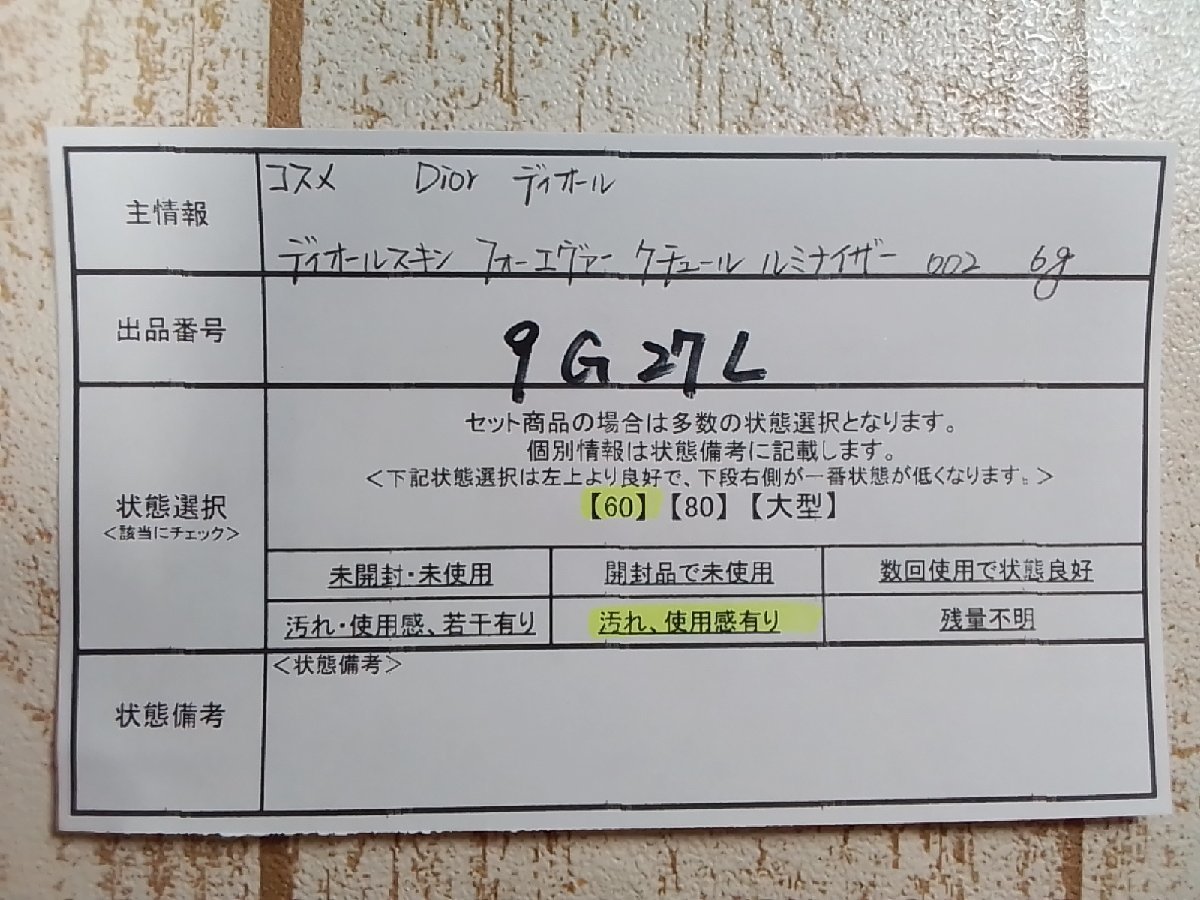 主情報
コスメ Dior ディオール
ディオールスキン フォーエヴァー クチュール ルミナイザー 002 6g
出品番号
9G27L
状態選択
<該当にチェック>
セット商品の場合は多数の状態選択となります。
個別情報は状態備考に記載します。
<下記状態選択は左上より良好で、下段右側が一番状態が低くなります。>
【60】【80】【大型】
未開封・未使用 開封品で未使用 数回使用で状態良好
汚れ・使用感、若干有り 汚れ、使用感有り 残量不明
状態備考
<状態備考>